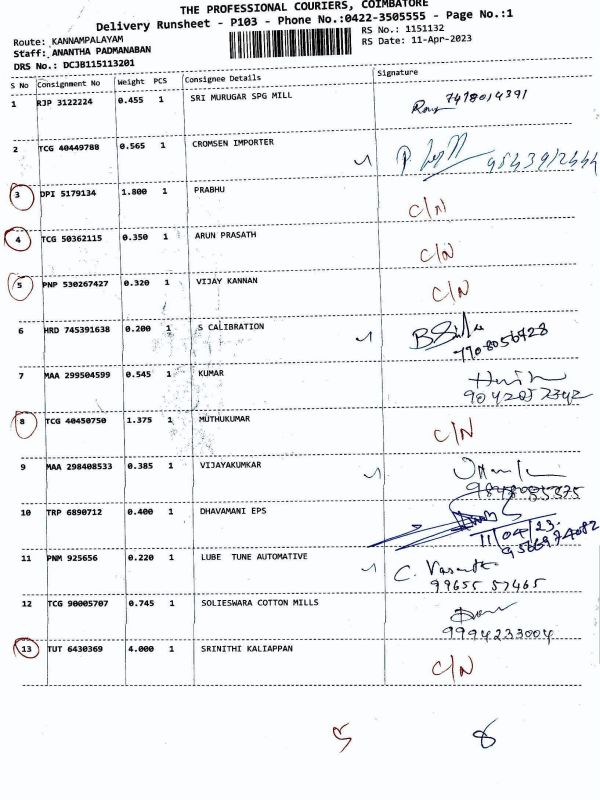 THE PROFESSIONAL COURIERS, COIMBATORE
Delivery Runsheet - P103 - Phone No.:0422-3505555 - Page No.:1
Route: KANNAMPALAYAM RS No.: 1151132
Staff: ANANTHA PADMANABAN RS Date: 11-Apr-2023
DRS No.: DCJB115113201
S No Consignment No Weight PCS Consignee Details Signature
1 RJP 3122224 0.455 1 SRI MURUGAR SPG MILL 7418014391
2 TCG 40449788 0.565 1 CROMSEN IMPORTER
3 DPI 5179134 1.800 1 PRABHU C/N
4 TCG 50362115 0.350 1 ARUN PRASATH C/N
5 PNP 530267427 0.320 1 VIJAY KANNAN C/N
6 HRD 745391638 0.200 1 S CALIBRATION
7708056728
7 MAA 299504599 0.545 1 KUMAR
9042057342
8 TCG 40450750 1.375 1 MUTHUKUMAR C/N
9 MAA 298408533 0.385 1 VIJAYAKUMKAR
10 TRP 6890712 0.400 1 DHAVAMANI EPS
11/04/23
9566974082
11 PNM 925656 0.220 1 LUBE TUNE AUTOMATIVE C. Vasanth
99655 57465
12 TCG 90005707 0.745 1 SOLIESWARA COTTON MILLS
9994233004
13 TUT 6430369 4.000 1 SRINITHI KALIAPPAN C/N
5 8